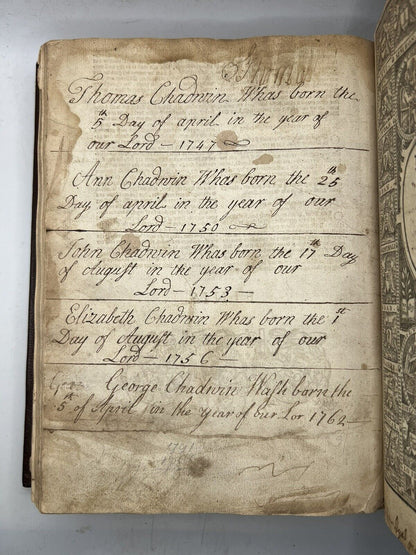 Thomas Chadwin Whas born the
5th Day of april in the year of
our Lord — 1747
Ann Chadwin Whas born the 25th
Day of april in the year of our
Lord — 1750
John Chadwin Whas born the 17th Day
of August in the year of our
Lord — 1753 —
Elizabeth Chadwin Whas born the 1st
Day of August in the year of our
Lord — 1756
George Chadwin Wash born the
5th of April in the year of our Lor 1762